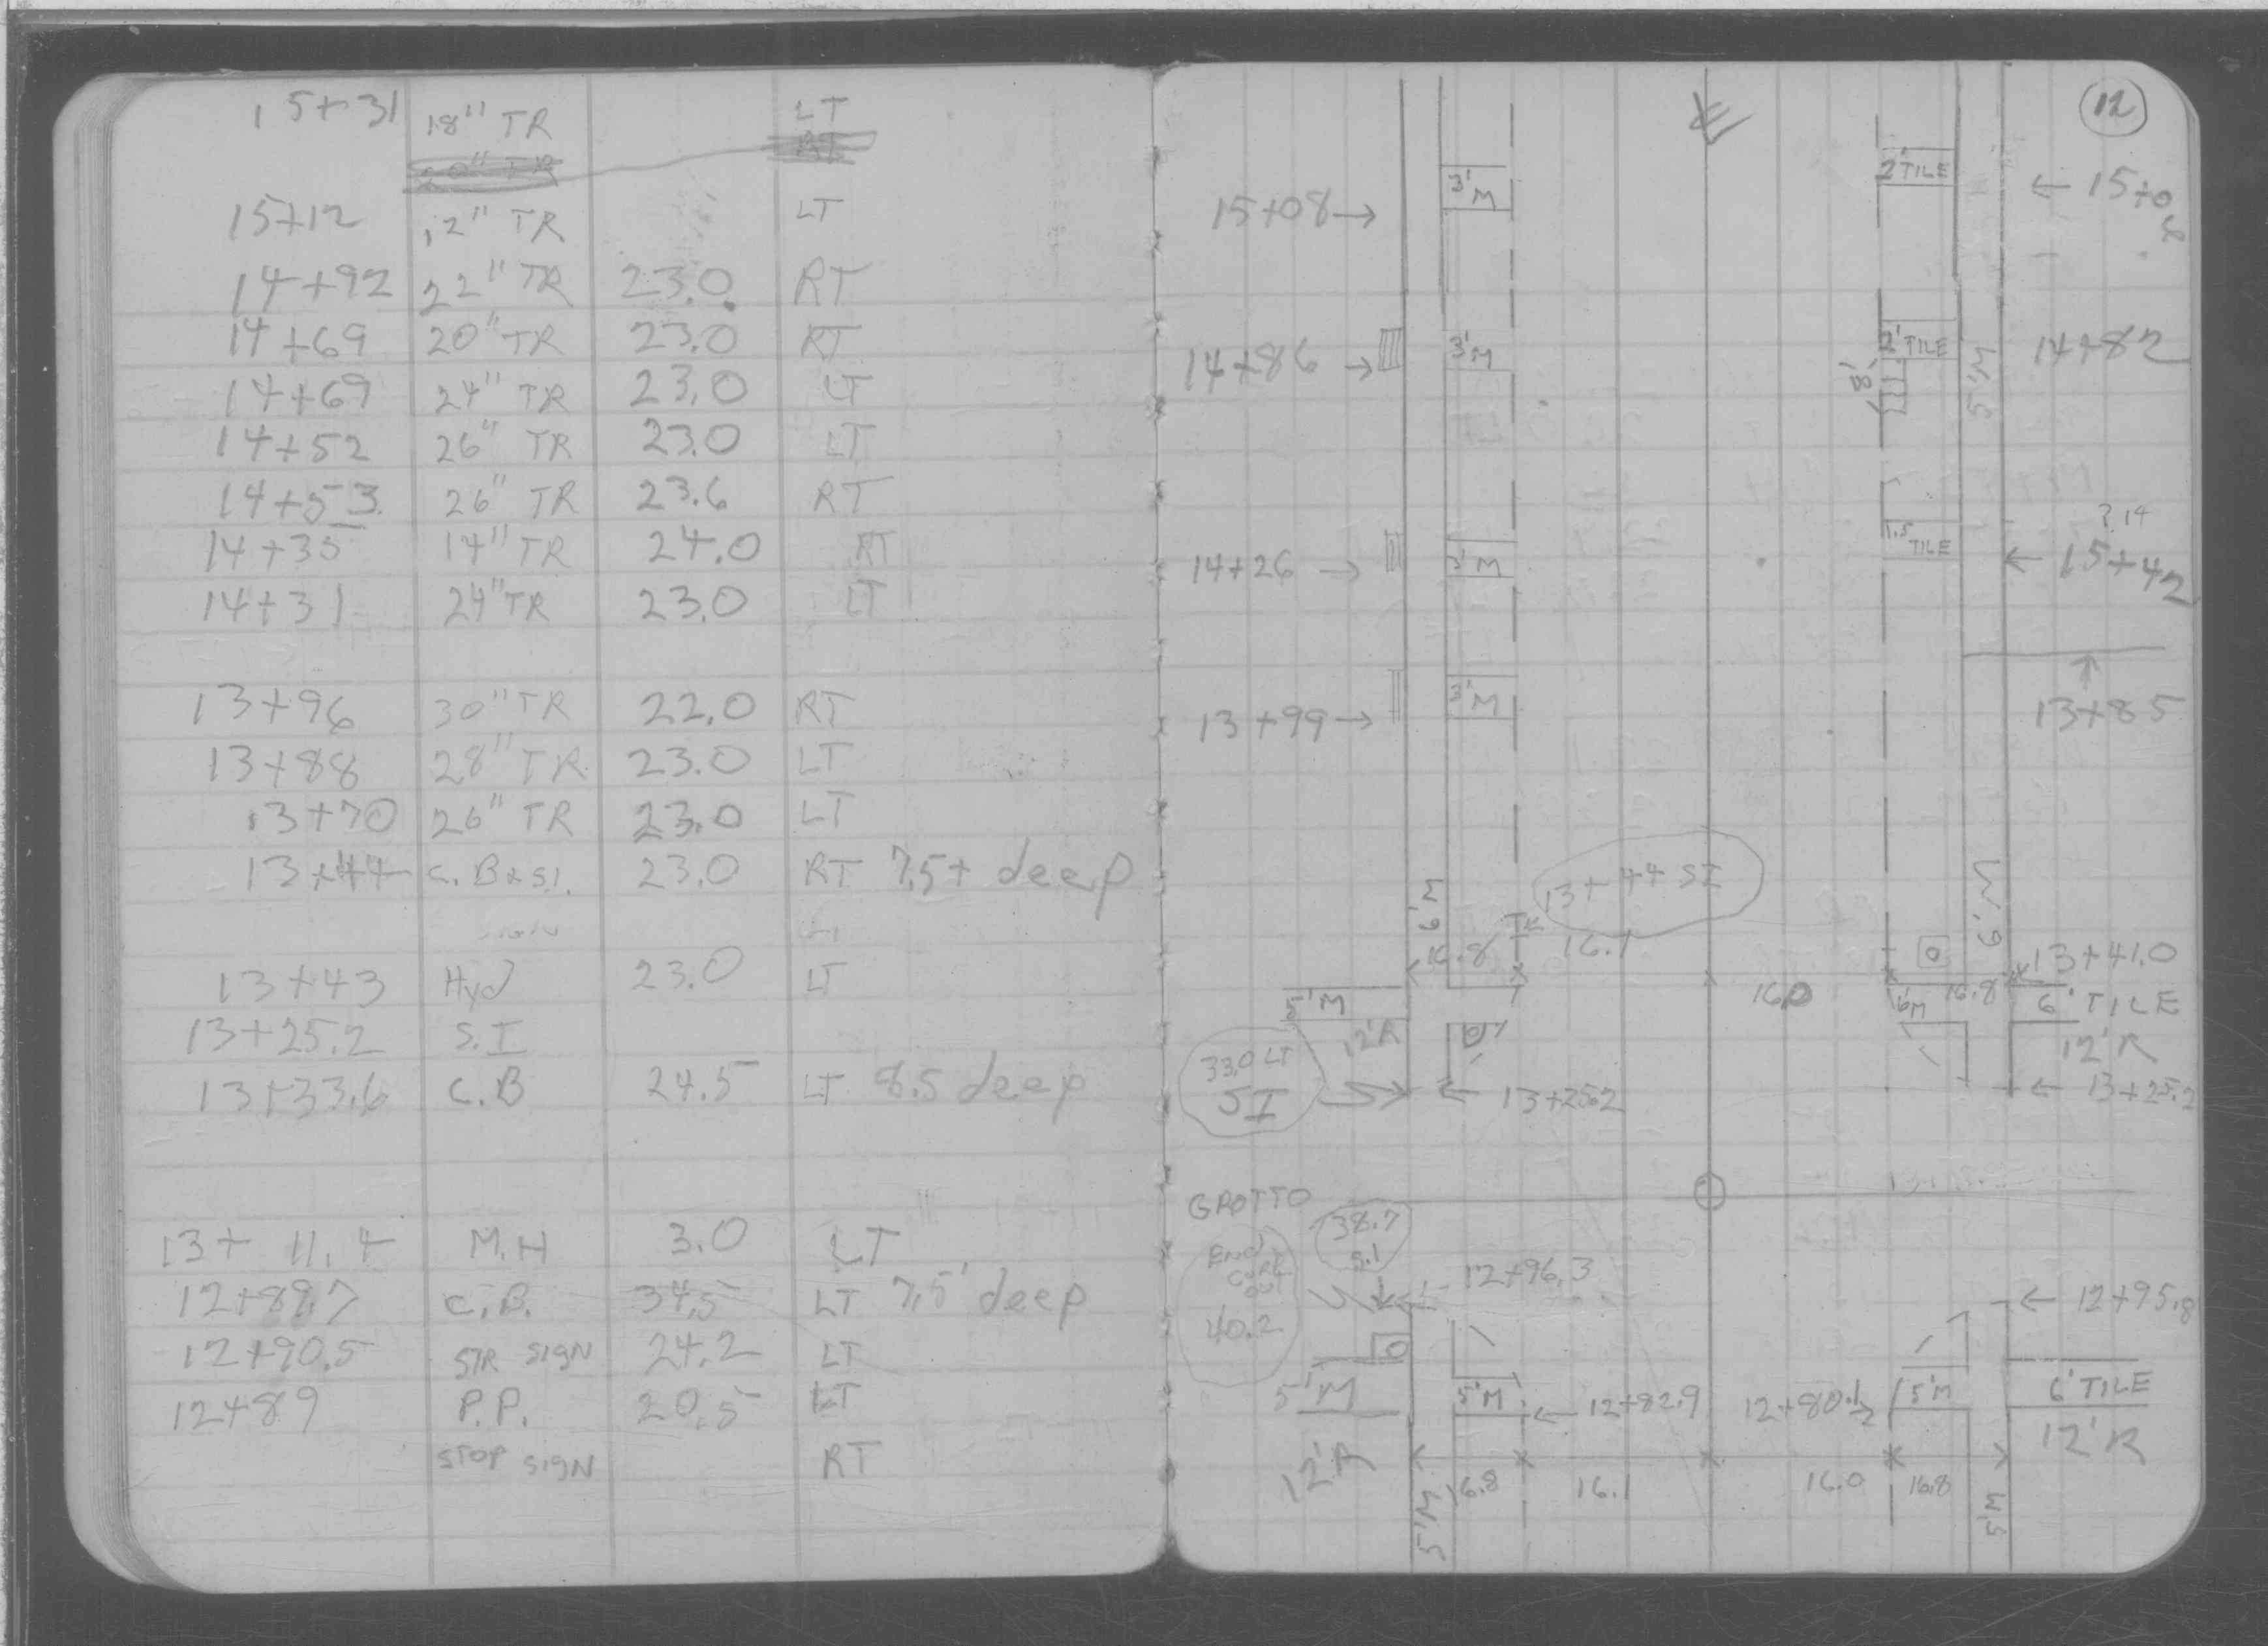 15+31 18" TR LT
15+12 12" TR LT
14+92 22" TR 23.0 RT
14+69 20" TR 23.0 RT
14+69 24" TR 23.0 LT
14+52 26" TR 23.0 LT
14+53 26" TR 23.6 RT
14+35 14" TR 24.0 RT
14+31 24" TR 23.0 LT
13+96 30" TR 22.0 RT
13+88 28" TR 23.0 LT
13+70 26" TR 23.0 LT
13+44 C.B+S.I. 23.0 RT 7.5+ deep
13+43 Hyd 23.0 LT
13+25.2 S.I
13+33.6 C.B 24.5 LT 8.5 deep
13+ 11.4 M.H 3.0 LT
12+89.7 C.B. 34.5 LT 7.5' deep
12+90.5 STR SIGN 24.2 LT
12+89 P.P. 20.5 LT
STOP SIGN RT
12
15+08→ 3'M 2'TILE ← 15+08
14+86 → 3'M 2'TILE 14+82
8' 5'M
? 14
14+26 → 3'M 1.5 TILE ← 15+42
13+99→ 3'M 13+85
13+44 SI
6'M 6'M
16.8 16.1 16.0 16.8 13+41.0
5'M 6'M 6' TILE
12'R 12'R
33.0 LT
SI ← 13+25.2 ← 13+25.2
GROTTO
38.7
S.I
END CURB CUT
40.2
← 12+96.3 ← 12+95.8
5'M 5'M ← 12+82.9 12+80.1→ 5'M 6' TILE
12'R 12'R
16.8 16.1 16.0 16.8
5'M 5'M